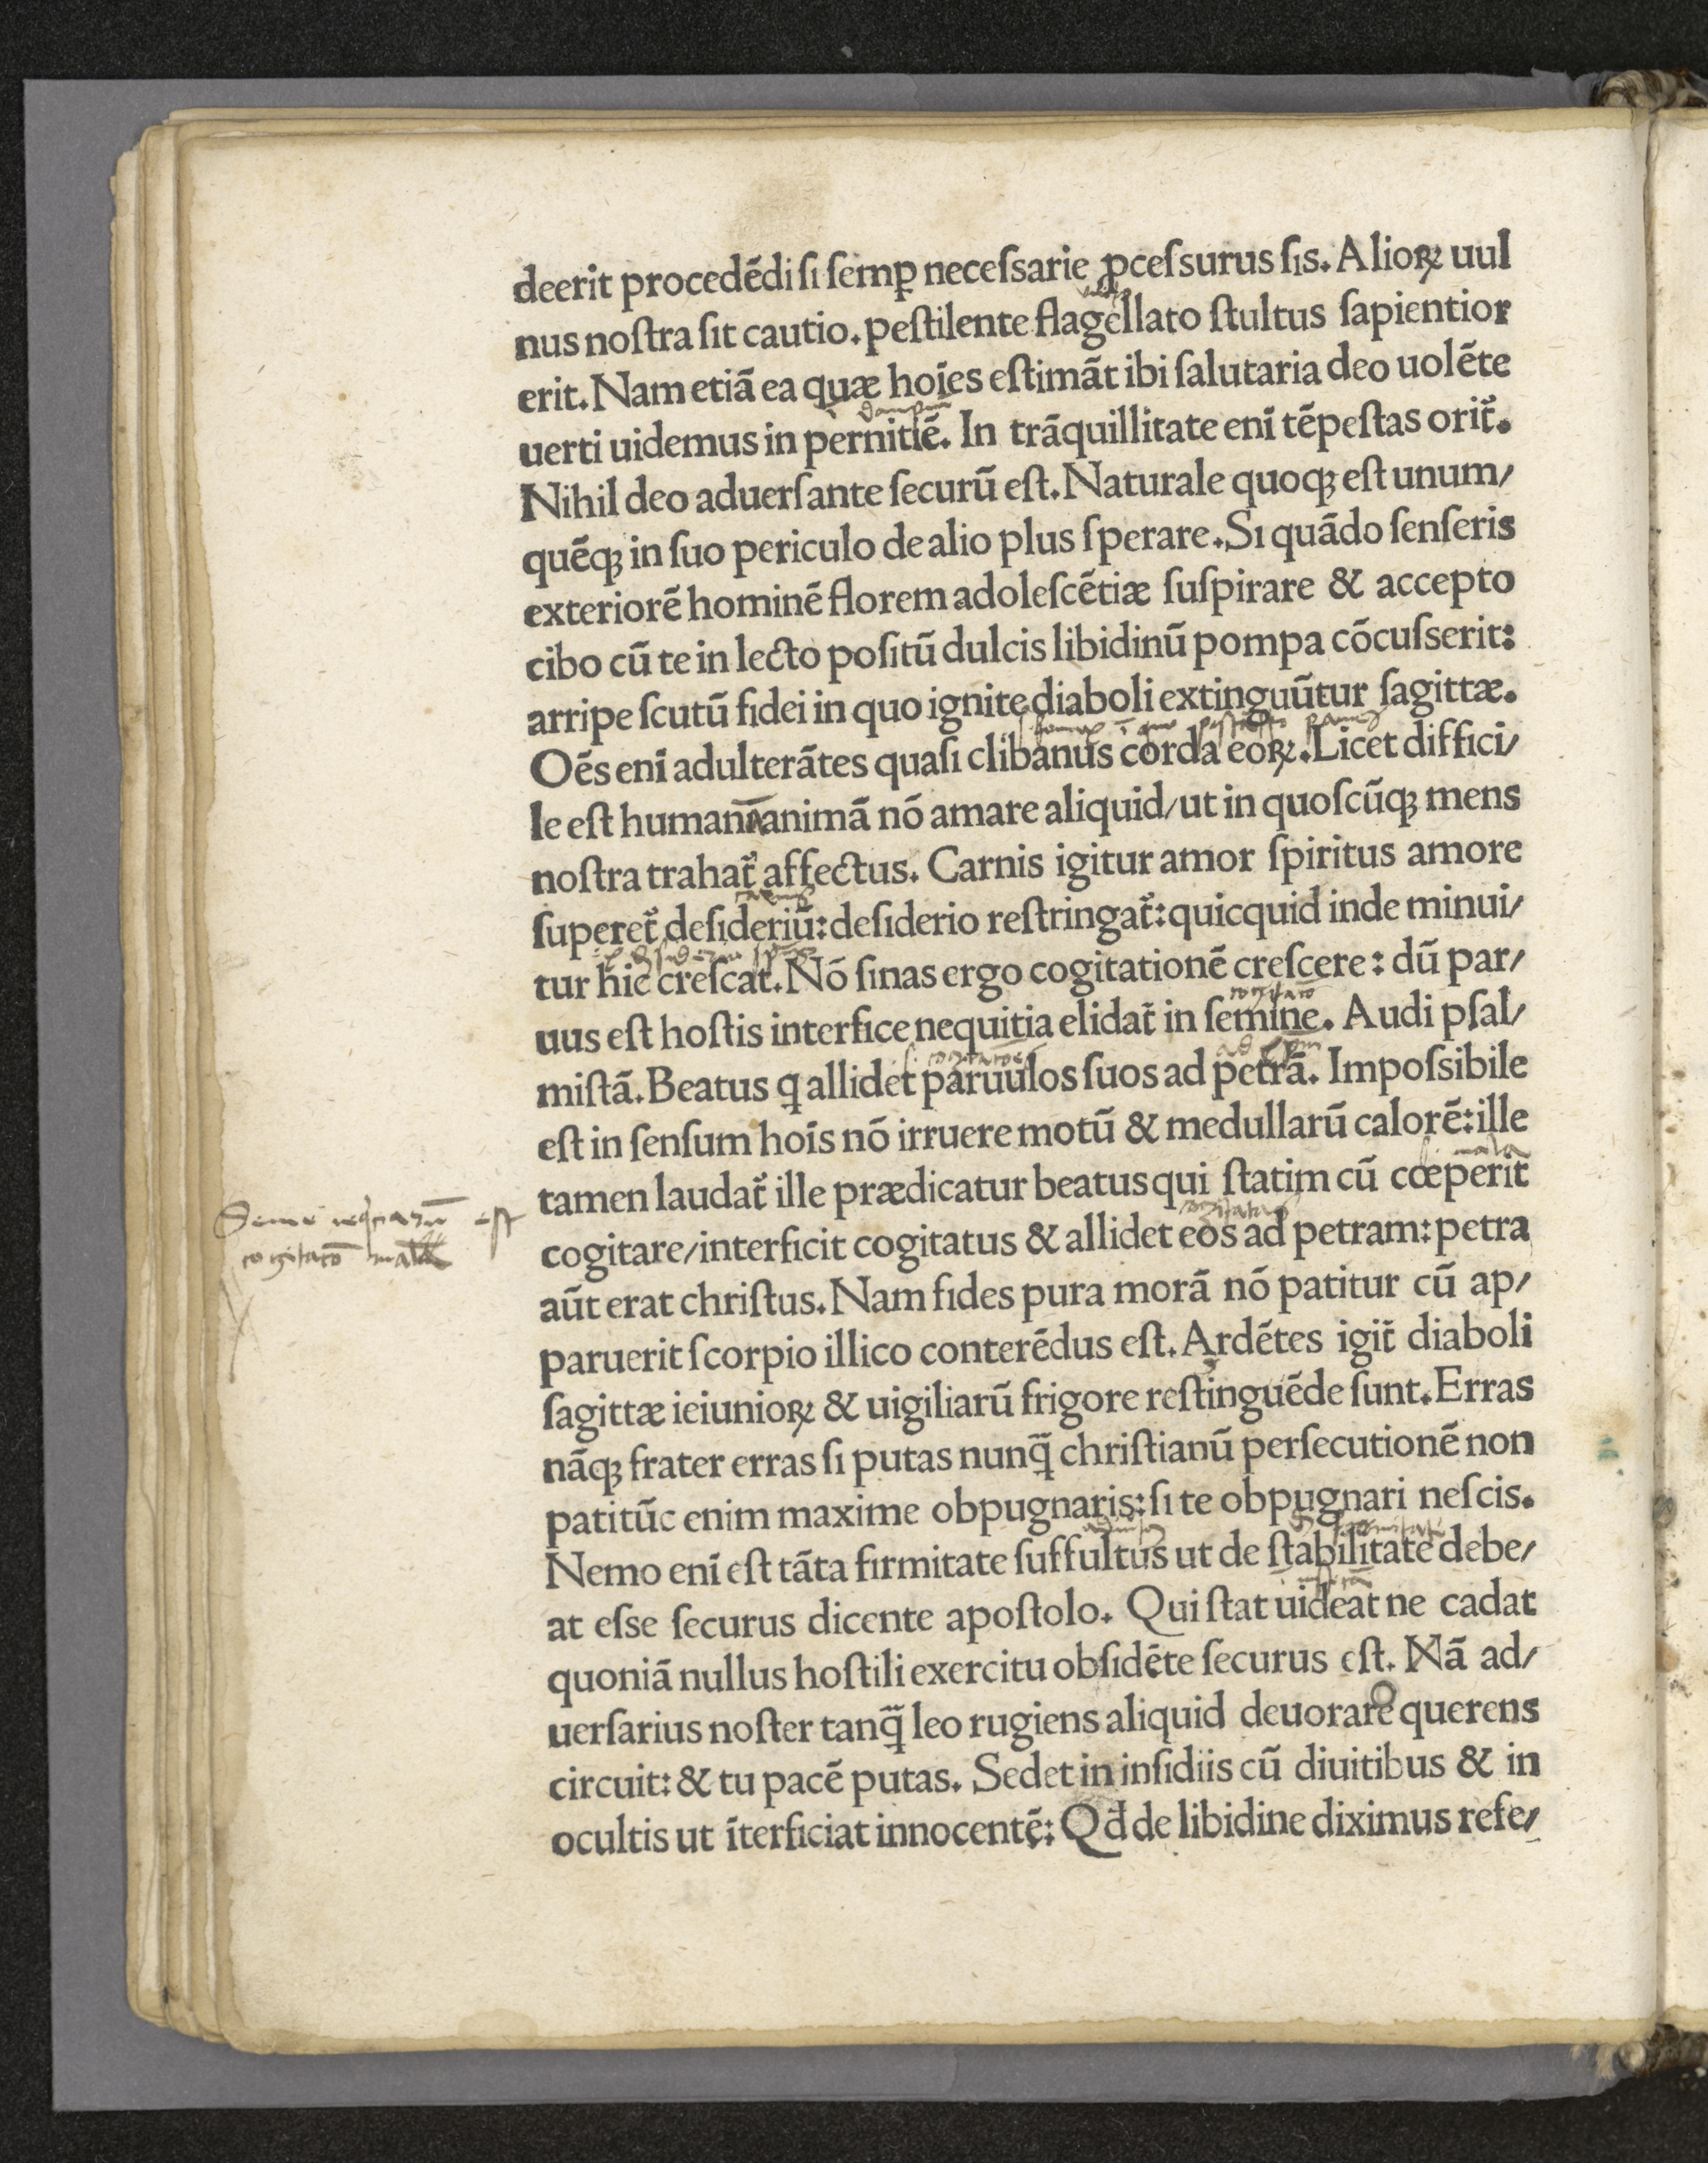 deerit procedēdi si semꝑ necessarie ꝓcessurus sis. Alioꝝ uul
nus nostra sit cautio. pestilente flagellato stultus sapientior
erit. Nam etiā ea quæ hoīes estimāt ibi salutaria deo uolēte
uerti uidemus in pernitiē. In trāquillitate enī tēpestas orit᷑.
Nihil deo aduersante securū est. Naturale quoqꝫ est unum/
quēqꝫ in suo periculo de alio plus sperare. Si quādo senseris
exteriorē hominē florem adolescētiæ suspirare & accepto
cibo cū te in lecto positū dulcis libidinū pompa cōcusserit:
arripe scutū fidei in quo ignite diaboli extinguūtur sagittæ.
Oēs enī adulterātes quasi clibanus corda eoꝝ. Licet diffici/
le est humanā animā nō amare aliquid/ ut in quoscūqꝫ mens
nostra trahat᷑ affectus. Carnis igitur amor spiritus amore
superet᷑ desideriū: desiderio restringat᷑: quicquid inde minui/
tur hic crescat. Nō sinas ergo cogitationē crescere: dū par/
uus est hostis interfice nequitia elidat᷑ in semine. Audi psal/
mistā. Beatus ꝗ allidet paruulos suos ad petrā. Impossibile
est in sensum hoīs nō irruere motū & medullarū calorē: ille
tamen laudat᷑ ille prædicatur beatus qui statim cū cœperit
cogitare/ interficit cogitatus & allidet eos ad petram: petra
aūt erat christus. Nam fides pura morā nō patitur cū ap/
paruerit scorpio illico conterēdus est. Ardētes igit᷑ diaboli
sagittæ ieiunioꝝ & uigiliarū frigore restinguēde sunt. Erras
nāqꝫ frater erras si putas nunꝗ̄ christianū persecutionē non
patitūc enim maxime obpugnaris: si te obpugnari nescis.
Nemo enī est tāta firmitate suffultus ut de stabilitate debe/
at esse securus dicente apostolo. Qui stat uideat ne cadat
quoniā nullus hostili exercitu obsidēte securus est. Nā ad/
uersarius noster tanꝗ̄ leo rugiens aliquid deuorare querens
circuit: & tu pacē putas. Sedet in insidiis cū diuitibus & in
ocultis ut īterficiat innocentē: Qd̄ de libidine diximus refe/
est
cogitatō mala